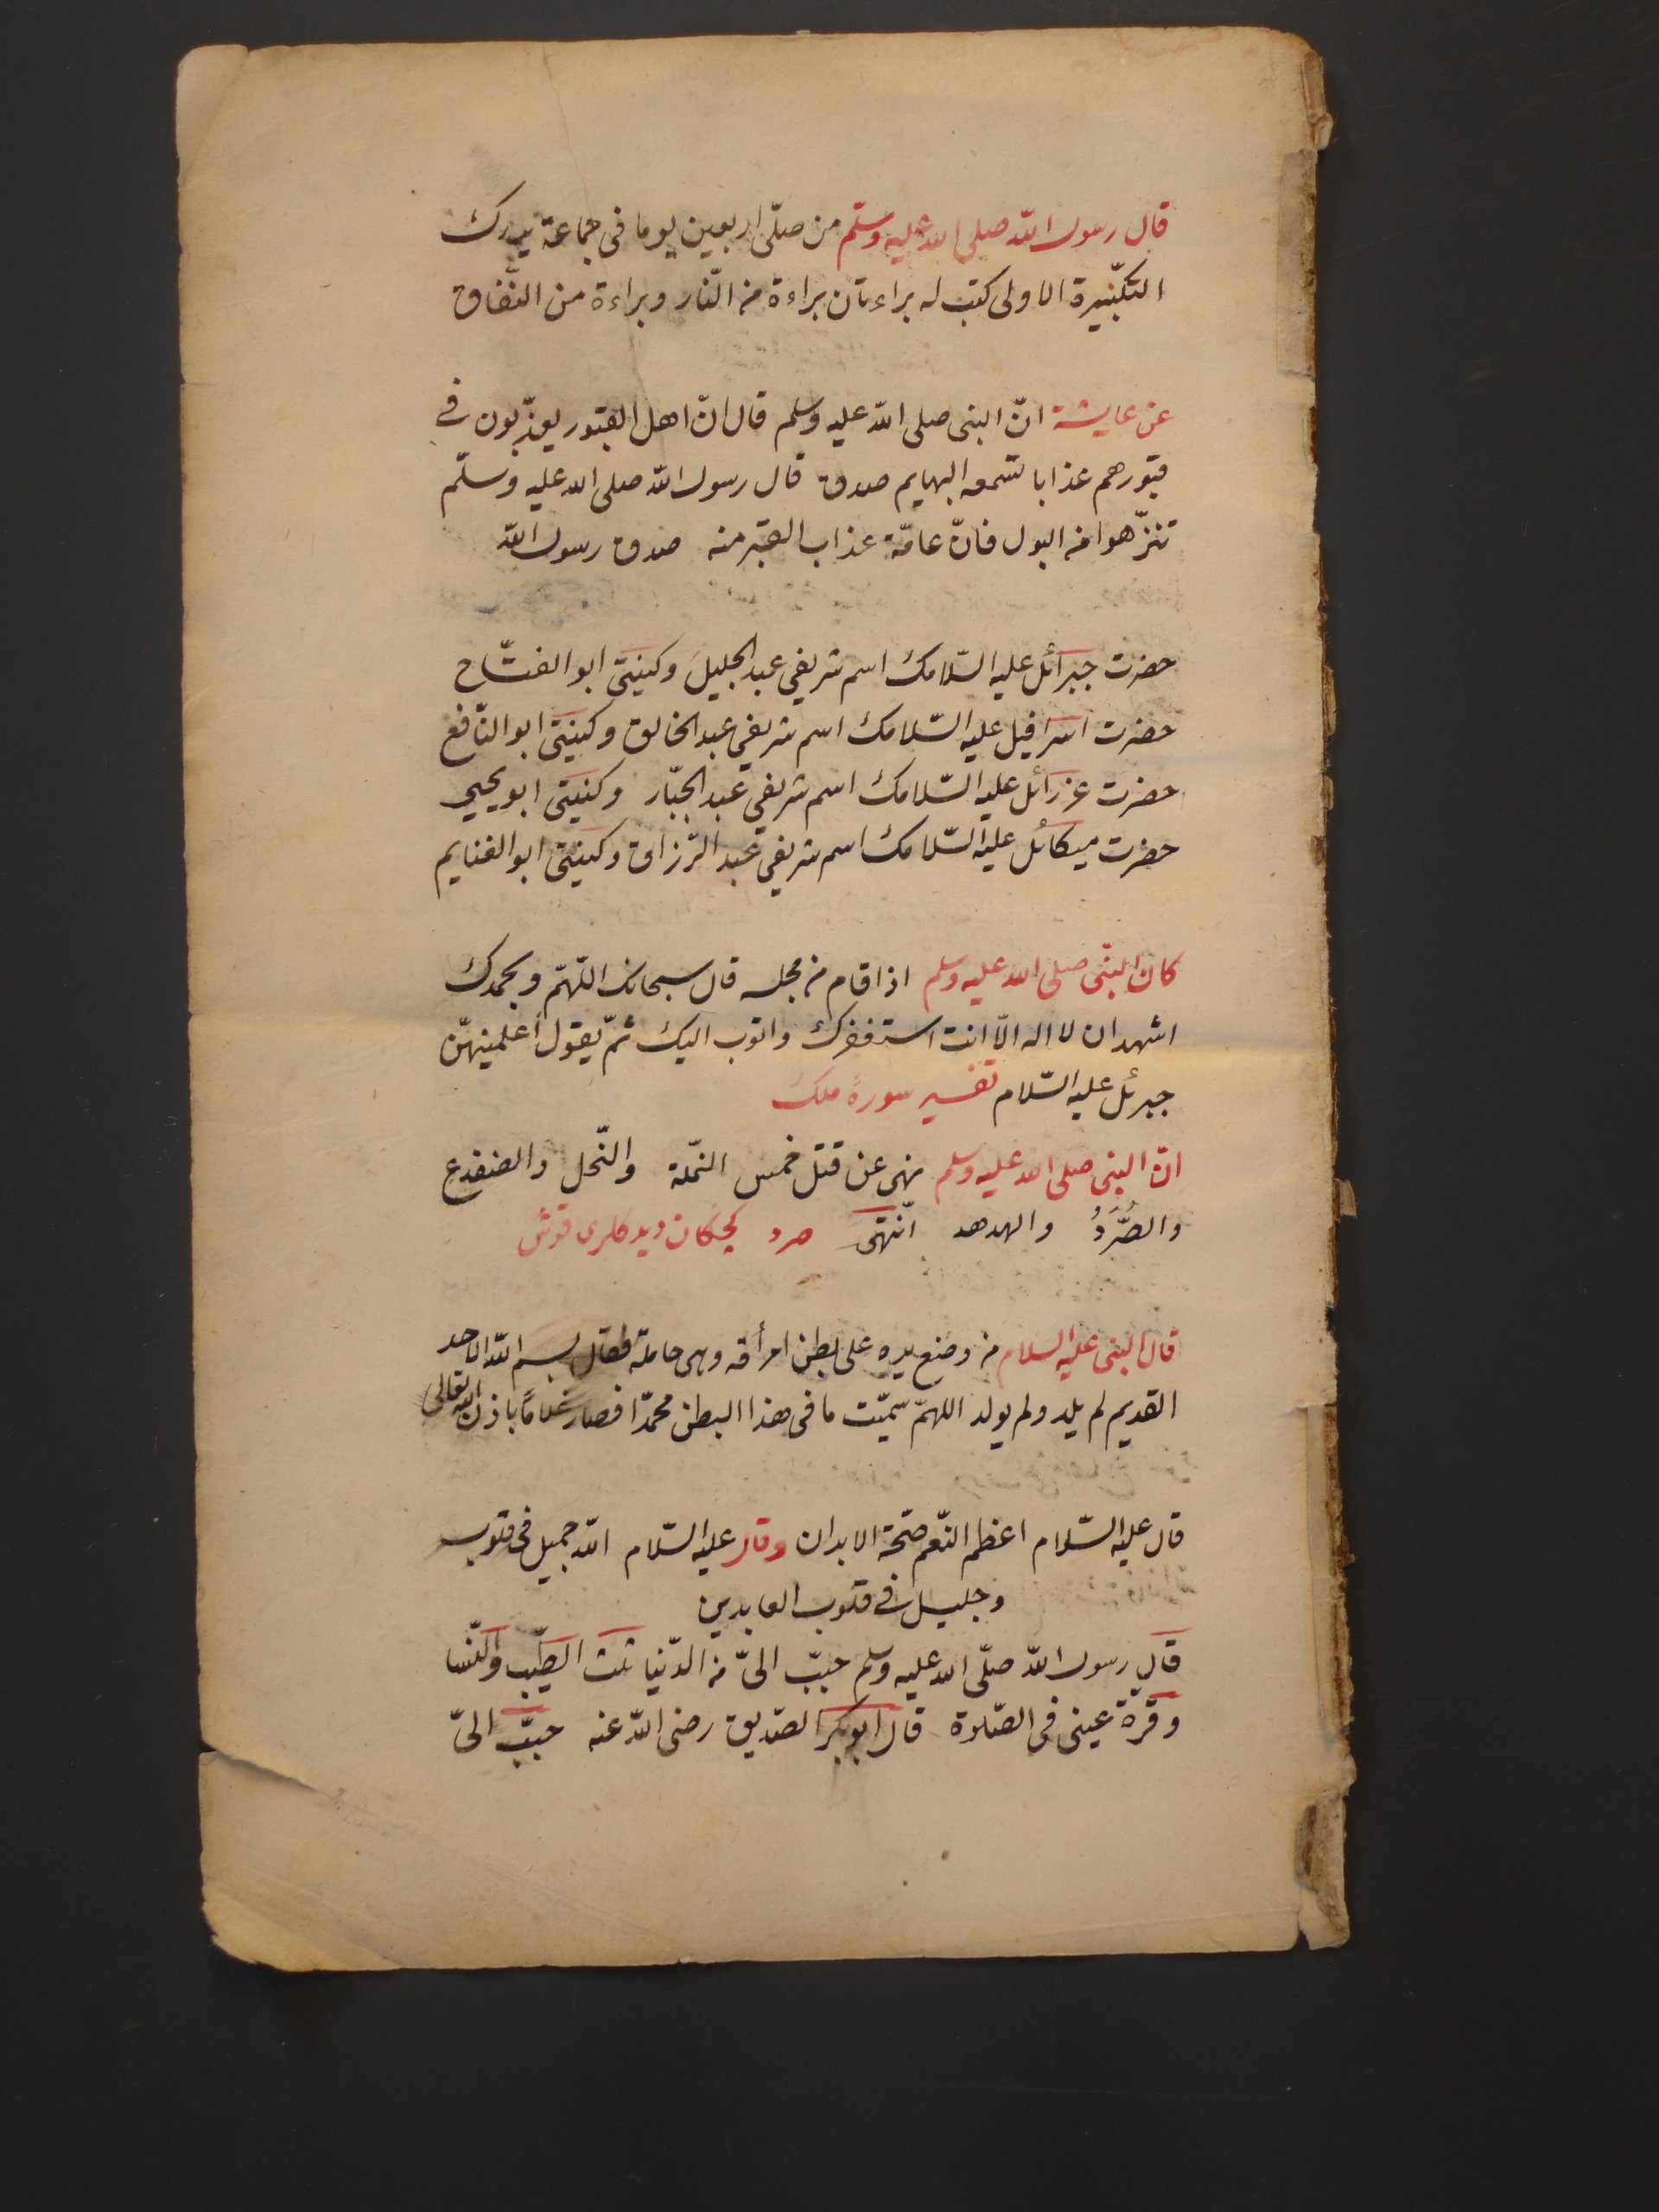 قال رسول الله صلى الله عليه وسلّم من صلّى اربعين يوما فى جماعة يدرك
التكبّيرة الاولى كتب له براءتان براءة من النّار وبراءة من النّفاق
عن عايشة انّ النبى صلى الله عليه وسلم قال انّ اهل القبور يعذّبون فى
قبورهم عذابا تسمعه البهايم صدق قال رسول الله صلى الله عليه وسلّم
تنزّهوا من البول فانّ عامّة عذاب القبر منه صدق رسول الله
حضرت جبرائل عليه السّلامك اسم شريفي عبد الجليل وكنيتى ابو الفتّاح
حضرت اسرافيل عليه السّلامك اسم شريفي عبد الخالق وكنيتى ابو النّافع
حضرت عزرائل عليه السّلامك اسم شريفي عبد الجبّار وكنيتى ابو يحيي
حضرت ميكائل عليه السّلامك اسم شريفي عبد الرّزاق وكنيتى ابو الغنايم
كان النبّى صلى الله عليه وسلم اذا قام من مجلسه قال سبحانك اللّهمّ وبحمدك
اشهد ان لا اله الّا انت استغفرك واتوب اليك ثمّ يقول اعلمنيهنّ
جبرئل عليه السّلام تفسير سورۀ ملك
انّ النبى صلى الله عليه وسلم نهى عن قتل خمس النّملة والنّحل والضفدع
والصُّرَدُ والهدهد انتهى صرد كچكان ديدكلرى قوش
قال النبى عليه السلام من وضع يده على بطن امرأته وهى حاملة فقال بسم الله الاحد
القديم لم يلد ولم يولد اللهمّ سميّت ما فى هذا البطن محمدّا فصار غلامًا باذن الله تعالى
قال عليه السّلام اعظم النّعم صحّة الابدان وقال عليه السّلام الله جميل فى قلوب
وجليل فى قلوب العابدين
قال رسول الله صلّى الله عليه وسلم حببّ الىّ من الدّنيا ثلث الطيّب والنّسا
وقرّة عينى فى الصّلاوة قال ابو بكر الصّديق رضى الله عنه حببّ الىّ